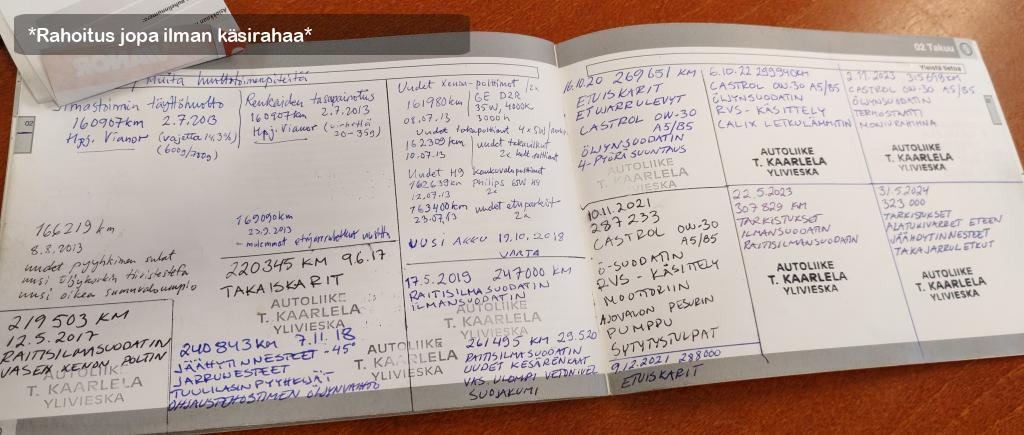 *Rahoitus jopa ilman käsirahaa*
02 Takuu
Yleistä tietoa
02
Muita huoltotoimenpiteitä
Ilmastoinnin täyttöhuolto
160907km 2.7.2013
Hpj. Vianor (vajetta 14,3%)
(600g/700g)
Renkaiden tasapainotus
160907km 2.7.2013
Hpj. Vianor
20-35g)
166219 km
8.8.2013
uudet pyyhkimen sulat
uusi öljykorkin tiiviste
uusi oikea sumuvaloumpio
169090km
23.9.2013
- molemmat etujarruletkut
219503 KM
12.5.2017
RAITISILMASUODATIN
VASEN XENON POLTIN
AUTOLIIKE
T. KAARLELA
YLIVIESKA
220345 KM 9.6.17
TAKAISKARIT
AUTOLIIKE
T. KAARLELA
YLIVIESKA
240843 KM 7.11.18
JÄÄHYTINNESTEET -45°
JARRUNESTEET
TUULILASINPYYHKIJÄT
OHJAUSTEHOSTIMEN ÖLJYNVAIHTO
AUTOLIIKE
T. KAARLELA
YLIVIESKA
Uudet xenon-polttimot / 2x
161980km GE D2R
08.07.13 35W, 4000K
3000h
Uudet takapolttimot 4x 5W
162309km uudet takavilkut
10.07.13 2x
Uudet H9 kaukovalopolttimot
162639km Philips 65W H9
12.07.13 2x
163400km uudet etuparkit
23.07.13 2x
UUSI AKKU 19.10.2018
VARTA
17.5.2019 247000 KM
RAITISILMASUODATIN
ILMANSUODATIN
AUTOLIIKE
T. KAARLELA
YLIVIESKA
261495 KM 29.5.20
RAITISILMASUODATIN
UUDET KESÄRENKAAT
VAS ULOMPI VETONIVEL
SUOJAKUMI
16.10.20 269651 KM
ETUISKARIT
ETUJARRULEVYT
CASTROL OW-30
A5/B5
ÖLJYNSUODATIN
4-PYÖRÄSUUNTAUS
AUTOLIIKE
T. KAARLELA
YLIVIESKA
10.11.2021
287 233
CASTROL OW-30
A5/B5
Ö-SUODATIN
RVS - KÄSITTELY
MOOTTORIIN
AJOVALON PESURIN
PUMPPU
SYTYTYSTULPAT
9.12.2021 288000
ETUISKARIT
6.10.22 299940KM
CASTROL OW-30 A5/B5
ÖLJYNSUODATIN
RVS - KÄSITTELY
CALIX LETKULÄMMITIN
AUTOLIIKE
T. KAARLELA
YLIVIESKA
22.5.2023
307 829 KM
TARKISTUKSET
ILMANSUODATIN
RAITISILMANSUODATIN
AUTOLIIKE
T. KAARLELA
YLIVIESKA
2.11.2023 315619KM
CASTROL OW-30 A5/B5
ÖLJYNSUODATIN
TERMOSTAATTI
MONIURAHIHNA
AUTOLIIKE
T. KAARLELA
YLIVIESKA
31.5.2024
323 000
TARKISUKSET
ALATUKIVARRET ETEEN
JÄÄHDYTINNESTEET
TAKAJARRULETKUT
AUTOLIIKE
T. KAARLELA
YLIVIESKA